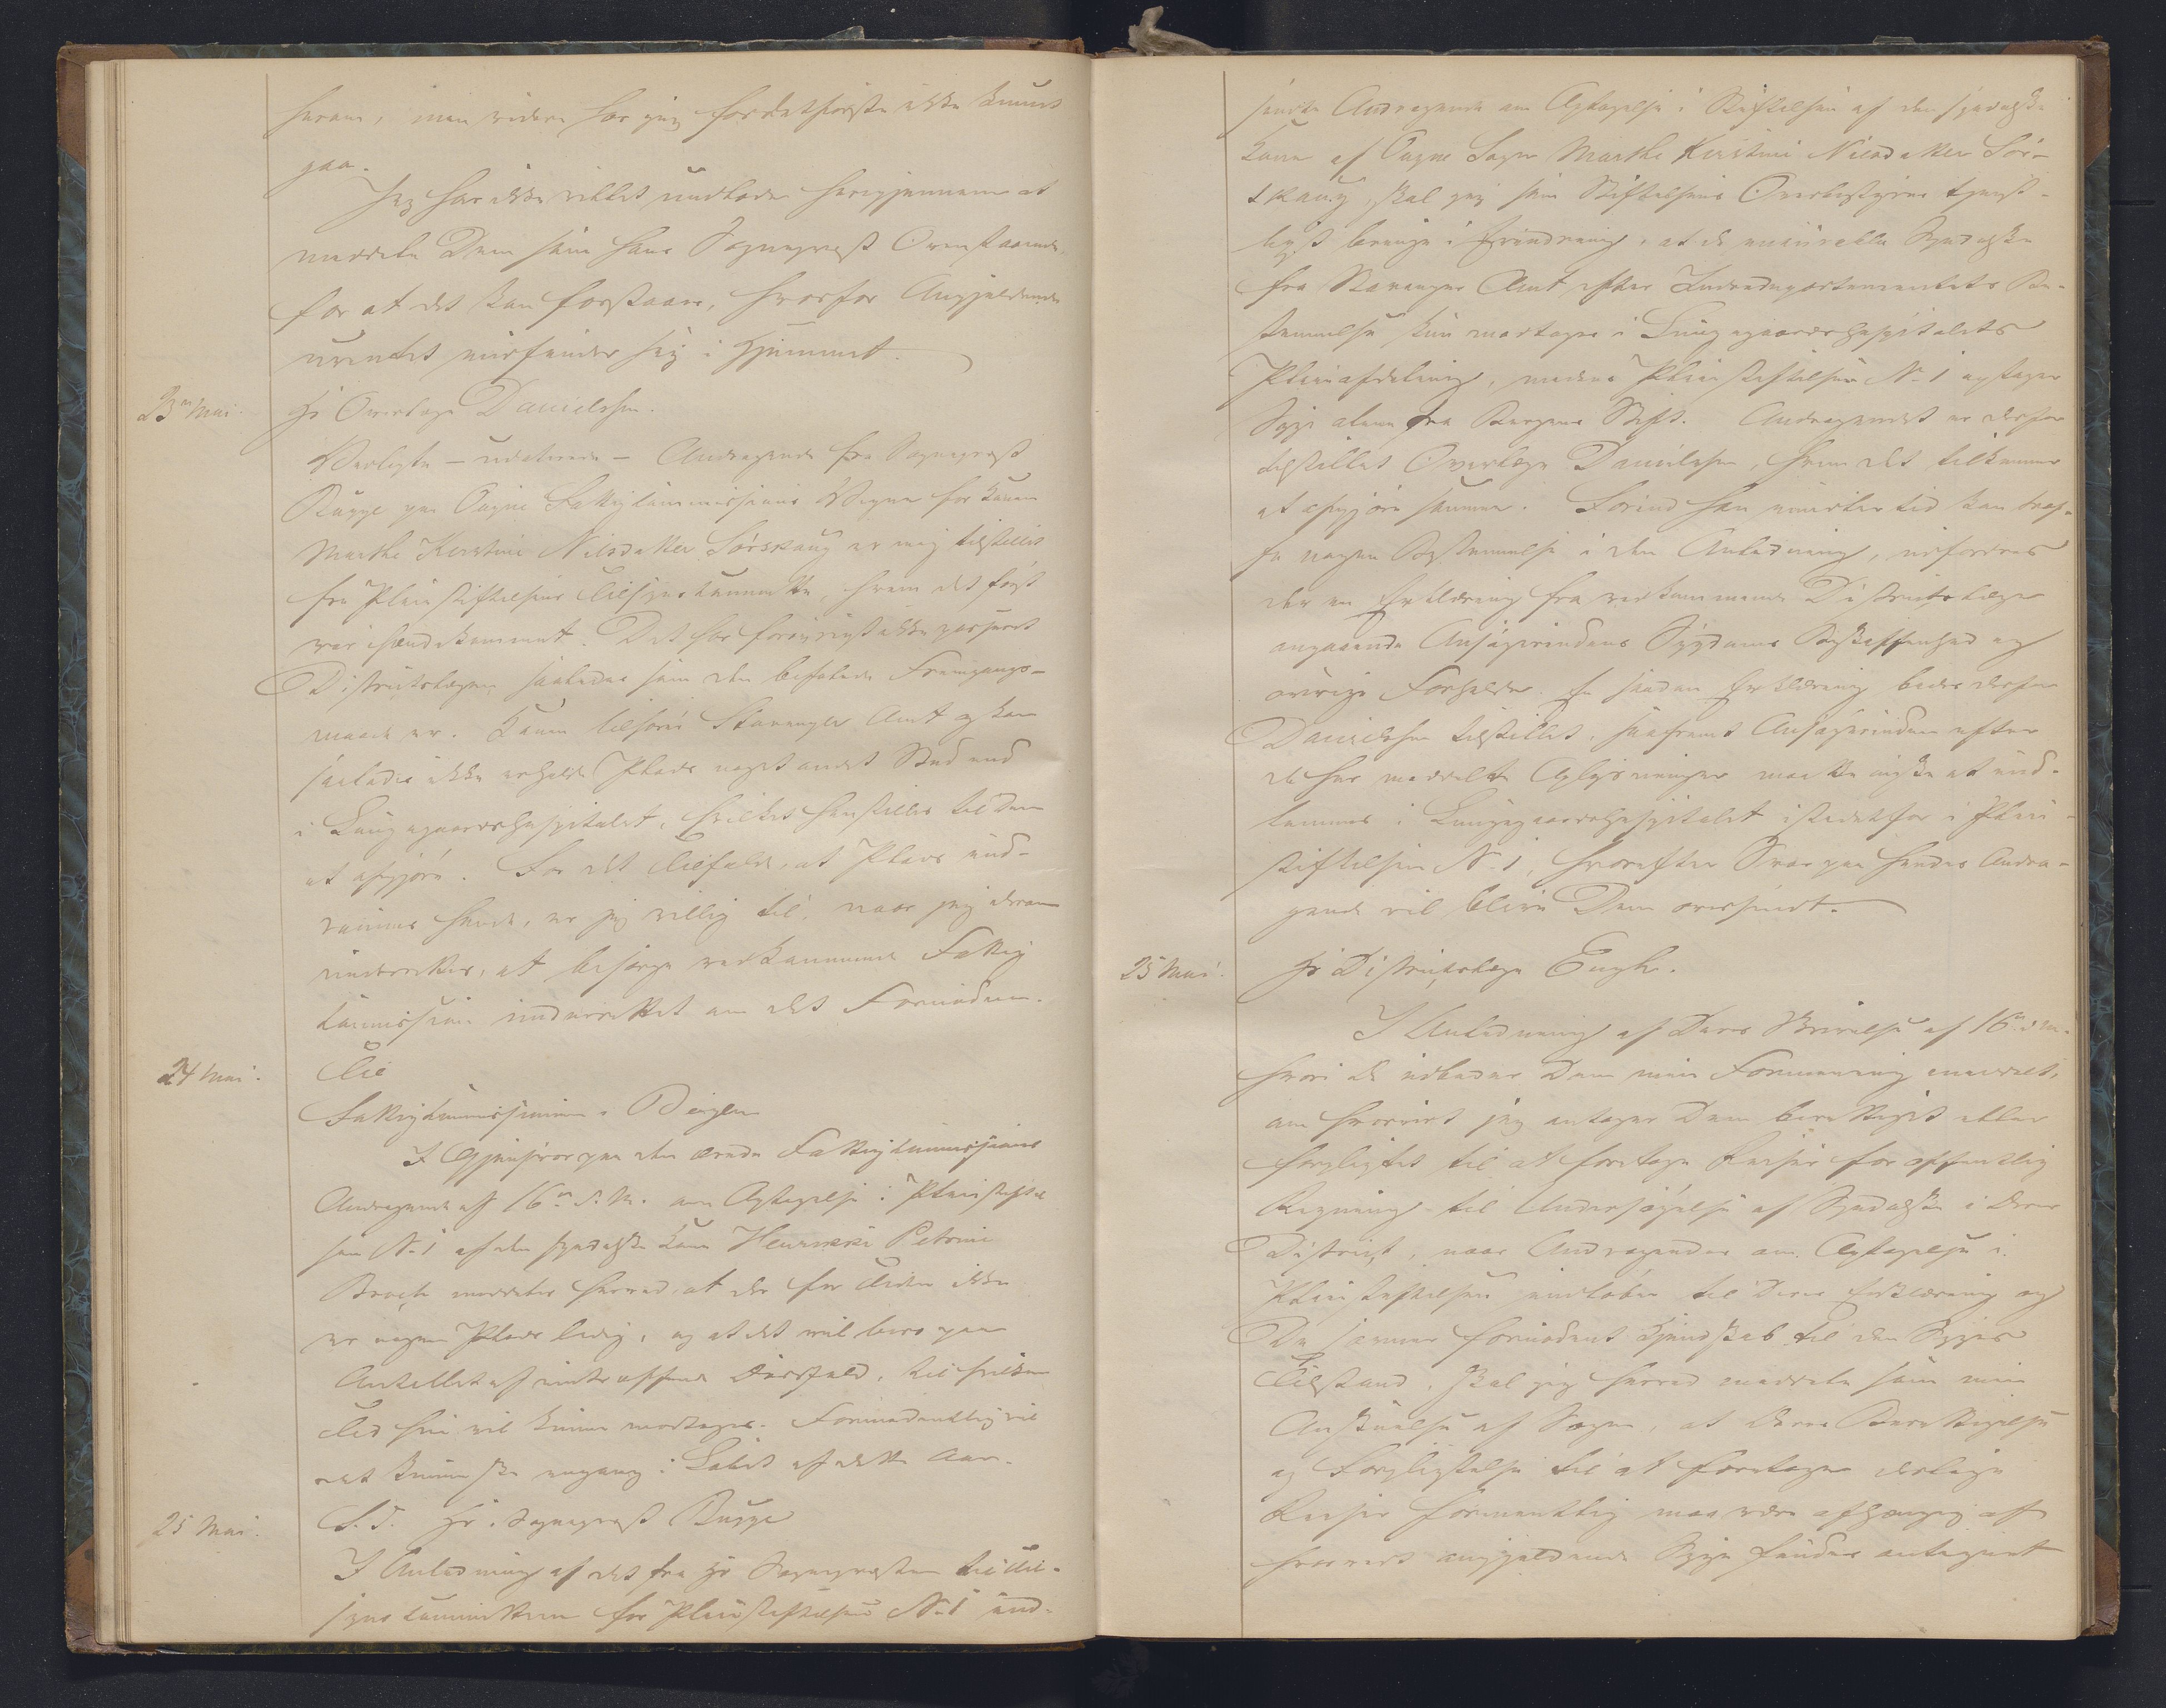 herom, men videre har jeg fordetførste ikke kunnet
gaa.
Jeg har ikke villet undlade herigjennem at
meddele Dem som Hans Sognepræst Ovenstaaende,
for at det kan forstaaes, hvorfor Angjeldende
uventet indfinder sig i Hjemmet.
23de Mai. Hr Overlæge Danielssen.
Vedlagte – udaterede – Andragende fra Sognepræst
Bugge paa Ogne Fattigkommissions Vegne for Konen
Marthe Kerstine Nilsdatter Sørskaug er mig tilstillet
fra Pleiestiftelsens Tilsynskommitte, hvem det først
var ihændekommet. Det har forøvrigt ikke passeret
Districtslægen saaledes som den befalede Fremgangs-
maade er. Konen tilhører Stavanger Amt og kan
saaledes ikke erholde Plads noget andet Sted end
i Lungegaardshospitalet, hvilket henstilles til Dem
at afgjøre. For det Tilfælde, at Plads ind-
rømmes hende, er jeg villig til, naar jeg derom
underrettes, at besørge vedkommende Fattig
kommission underrettet om det Fornødne.
24 Mai. Til
Fattigkommissionen i Bergen
I Gjensvar paa den ærede Fattigkommissions
Andragende af 16de d. M. om Optagelse i Pleiestiftel
sen No 1 af den spedalske Kone Henrikke Petrine
Broch meddeles herved, at der for Tiden ikke
er nogen Plads ledig, og at det vil bero paa
Antallet af indtræffende Dødsfald, til hvilken
Tid hun vil kunne modtages. Formodentlig vil
det kunne ske engang i Løbet af dette Aar.
25 Mai. S. T. Hr. Sognepræst Bugge
I Anledning af det fra Hr Sognepræsten til Til-
synskommitteen for Pleiestiftelsen No 1 ind-
sendte Andragende om Optagelse i Stiftelsen af den spedalske
Kone af Ogne Sogn Marthe Kerstine Nilsdatter Sør-
skaug, skal jeg som Stiftelsens Overbestyrer tjenst-
ligst bringe i Erindring, at de uhelbredede Spedalske
fra Stavanger Amt efter Indredepartementets Be-
stemmelse kun modtages i Lungegaardshospitalets
Pleieafdeling, medens Pleiestiftelsen No 1 optager
Syge alene fra Bergens Stift. Andragendet er derfor
tilstillet Overlæge Danielssen, hvem det tilkommer
at afgjøre samme. Førend han imidlertid kan træf-
fe nogen Bestemmelse i den Anledning, udfordres
der en Erklæring fra vedkommende Districtslæge
angaaende Ansøgerindens Sygdoms Beskaffenhed og
øvrige Forholde. En saadan Erklæring bedes derfor
Danielssen tilstillet, saafremt Ansøgerinden efter
de her meddelte Oplysninger maatte ønske at ind-
komme i Lungegaardshospitalet istedetfor i Pleie-
stiftelsen No 1, hvorefter Svar paa hendes Andra-
gende vil blive Dem oversendt.
25 Mai. Hr Districtslæge Engh.
I Anledning af Deres Skrivelse af 16de d. M.
hvori De udbeder Dem min Formening meddelt,
om hvorvidt jeg antager Dem berettiget eller
forpligtet til at foretage Reiser for offentlig
Regning til Undersøgelse af Spedalske i Deres
District, naar Andragender om Optagelse i
Pleiestiftelsen indløber til Deres Erklæring og
De savner fornødent Kjendskab til den Syges
Tilstand, skal jeg herved meddele som min
Anskuelse af Sagen, at Deres Berettigelse
og Forpligtelse til at foretage deslige
Reiser formentlig maa være afhængig af
hvorvidt angjeldende Syge findes antegnet